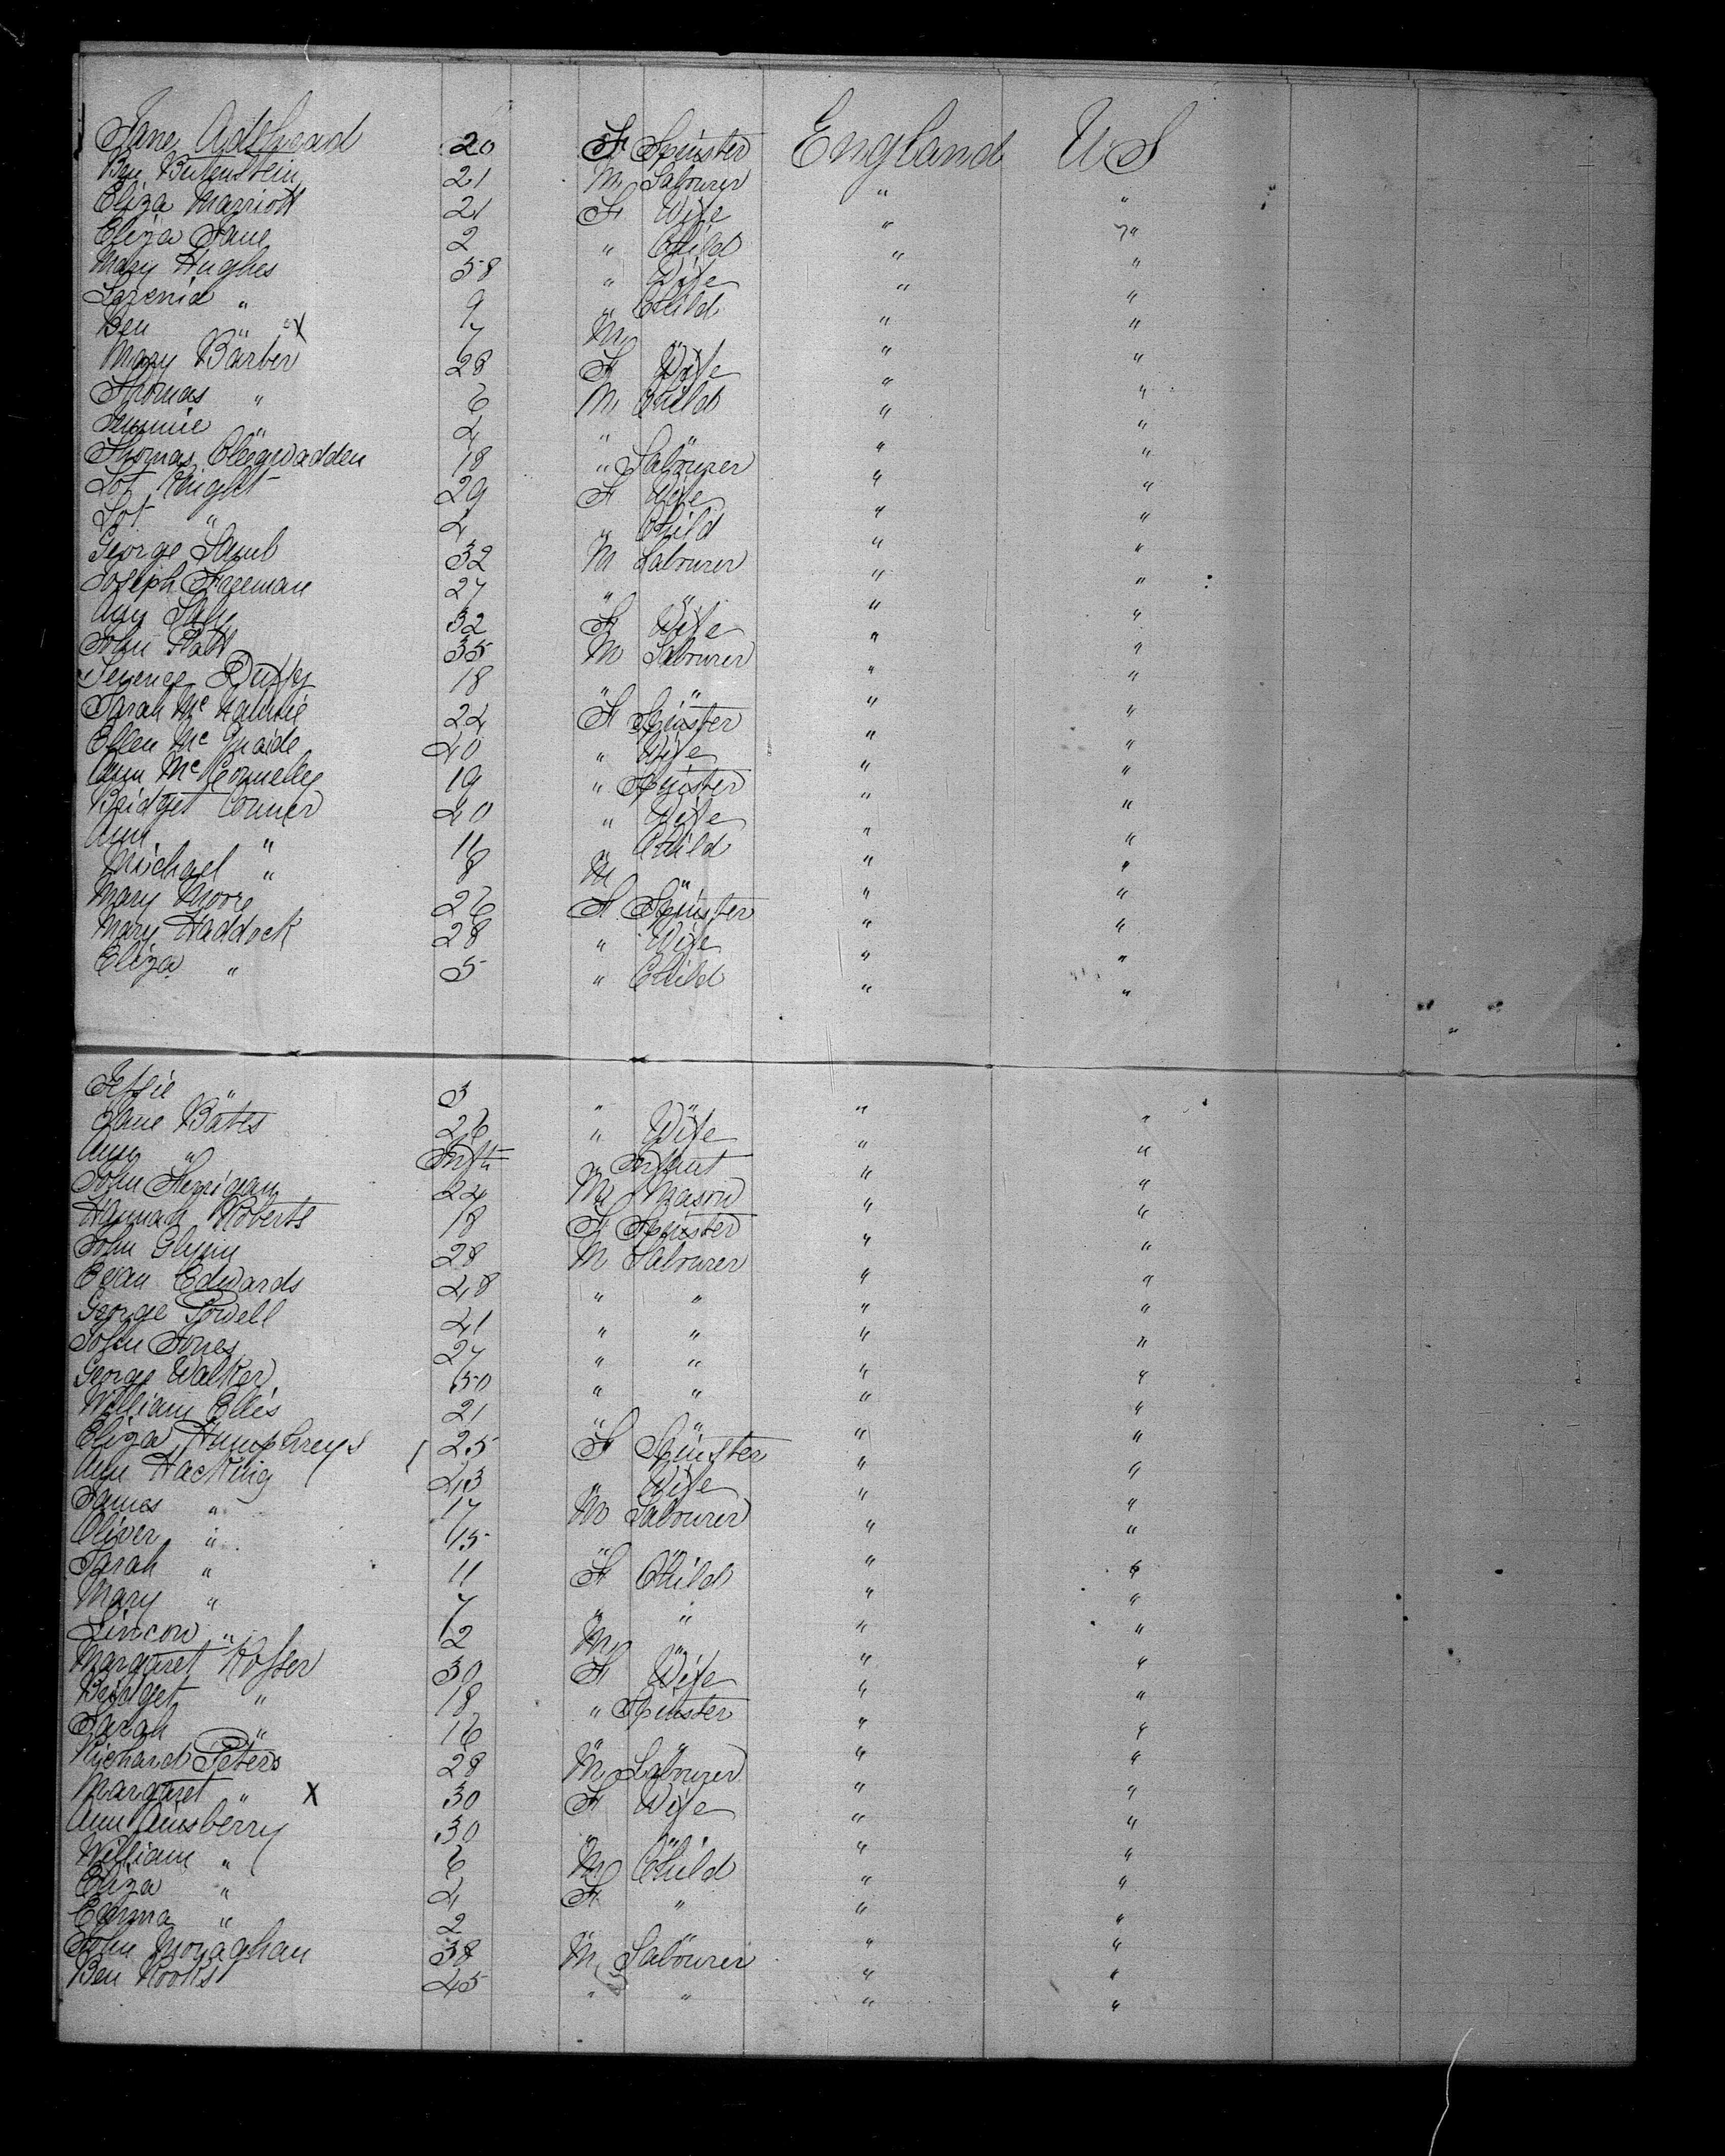 Jane Adshead 20 F Spinster England US
Ben Butenstein 21 M Labourer " "
Eliza Marriott 21 F Wife " "
Eliza Jane 2 " Child " "
Mary Hughes 38 " Wife " "
" 9 " Child " "
Ben " X 7 M " " "
Mary Barber 28 F Wife " "
Thomas " 6 M Child " "
" 4 " " " "
Thomas 18 " Labourer " "
Lot Knight 29 F Wife " "
Lot " 4 " Child " "
George Lamb 32 M Labourer " "
Joseph Freeman 27 " " " "
Ann 32 F Wife " "
John Platt 35 M Labourer " "
Terence Duffy 18 " " " "
Sarah Mc 24 F Spinster " "
Ellen Mc Quaide 40 " Wife " "
Ann Mc Connelly 19 " Spinster " "
Bridget Conner 40 " Wife " "
Ann " 11 " Child " "
Michael " 8 M " " "
Mary Moore 26 F Spinster " "
Mary Haddock 28 " Wife " "
Eliza " 5 " Child " "
Jessie " 3 " " " "
Jane Bates 26 " Wife " "
Ann " Inft " Infant " "
John 24 M Mason " "
Hannah Roberts 18 F Spinster " "
John Glynn 28 M Labourer " "
Evan Edwards 48 " " " "
George Powell 41 " " " "
John Jones 27 " " " "
George Walker 50 " " " "
William Ellis 21 " " " "
Eliza Humphreys 25 F Spinster " "
Ann Hacking 43 " Wife " "
James " 17 M Labourer " "
Oliver " 15 " " " "
Sarah " 11 F Child " "
Mary " 7 " " " "
Lincon " 2 M " " "
Margaret 30 F Wife " "
Bridget " 18 " Spinster " "
Sarah " 16 " " " "
Richard Peters 28 M Labourer " "
Margaret " X 30 F Wife " "
Ann Ainsberry 30 " " " "
William " 6 M Child " "
Eliza " 4 F " " "
Emma " 2 " " " "
John Monaghan 38 M Labourer " "
Ben Rooks 45 " " " "